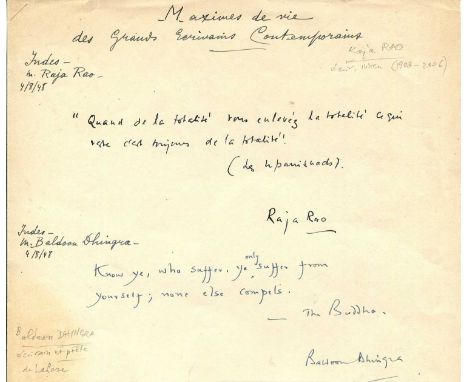 Maximes de vie
des Grands Ecrivains Contemporains
Raja RAO
(1908-2006)
Indes-
m. Raja Rao-
4/8/48
"Quand de la totalité vous enlevez la totalité ce qui
reste c'est toujours de la totalité".
(Les Upanishads).
Raja Rao
Indes-
M. Baldoon Dhingra-
4/8/48
Know ye, who suffer, ye only suffer from
yourself; none else compels.
— The Buddha.
Baldoon DHINGRA
écrivain et poète
de Lahore
Baldoon Dhingra